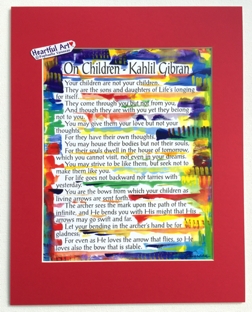 Heartful Art
On Children - Kahlil Gibran
Your children are not your children.
They are the sons and daughters of Life's longing
for itself.
They come through you but not from you,
And though they are with you yet they belong
not to you.
You may give them your love but not your
thoughts,
For they have their own thoughts.
You may house their bodies but not their souls,
For their souls dwell in the house of tomorrow,
which you cannot visit, not even in your dreams.
You may strive to be like them, but seek not to
make them like you.
For life goes not backward nor tarries with
yesterday.
You are the bows from which your children as
living arrows are sent forth.
The archer sees the mark upon the path of the
infinite, and He bends you with His might that His
arrows may go swift and far.
Let your bending in the archer's hand be for
gladness;
For even as He loves the arrow that flies, so He
loves also the bow that is stable.